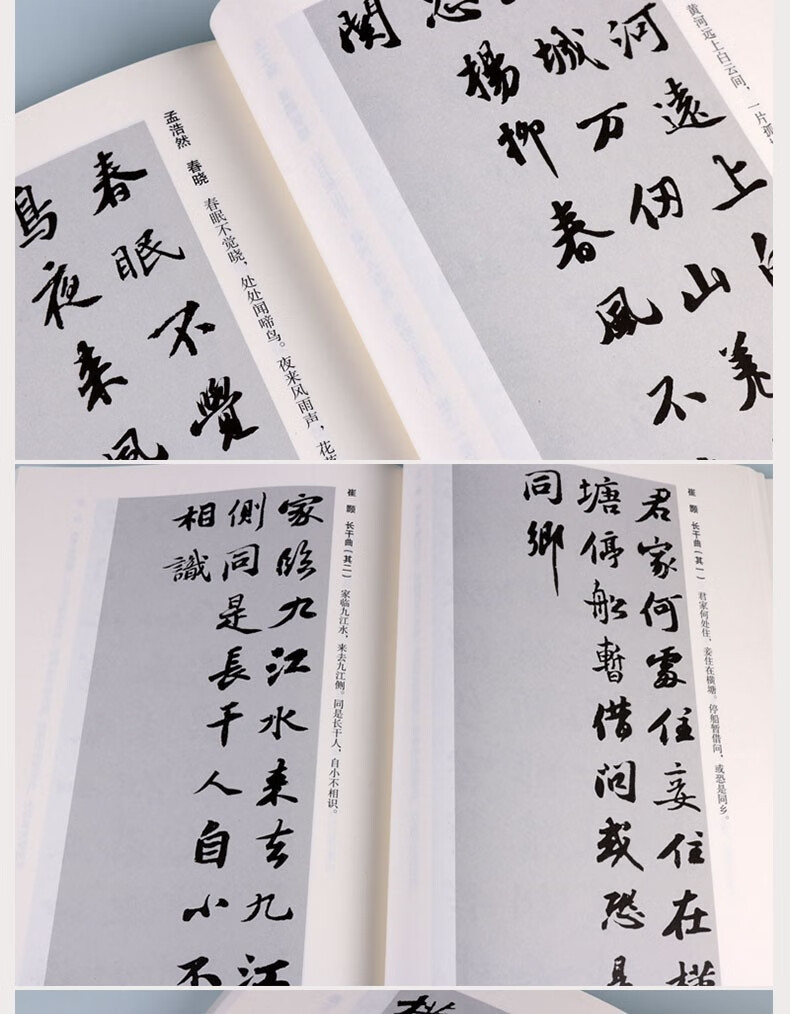 黄河远上白云间，一片孤
河遠上白
城万仞山羌
怨楊柳春風不
関
孟浩然 春晓 春眠不觉晓，处处闻啼鸟。夜来风雨声，花
春眠不覺
鳥夜来風
崔颢 长干曲（其一） 君家何处住，妾住在横塘。停船暂借问，或恐是同乡。
君家何處住妾住在横
塘停船暫借問或恐是
同鄉
崔颢 长干曲（其二） 家临九江水，来去九江侧。同是长干人，自小不相识。
家臨九江水来去九江
側同是長干人自小不
相識